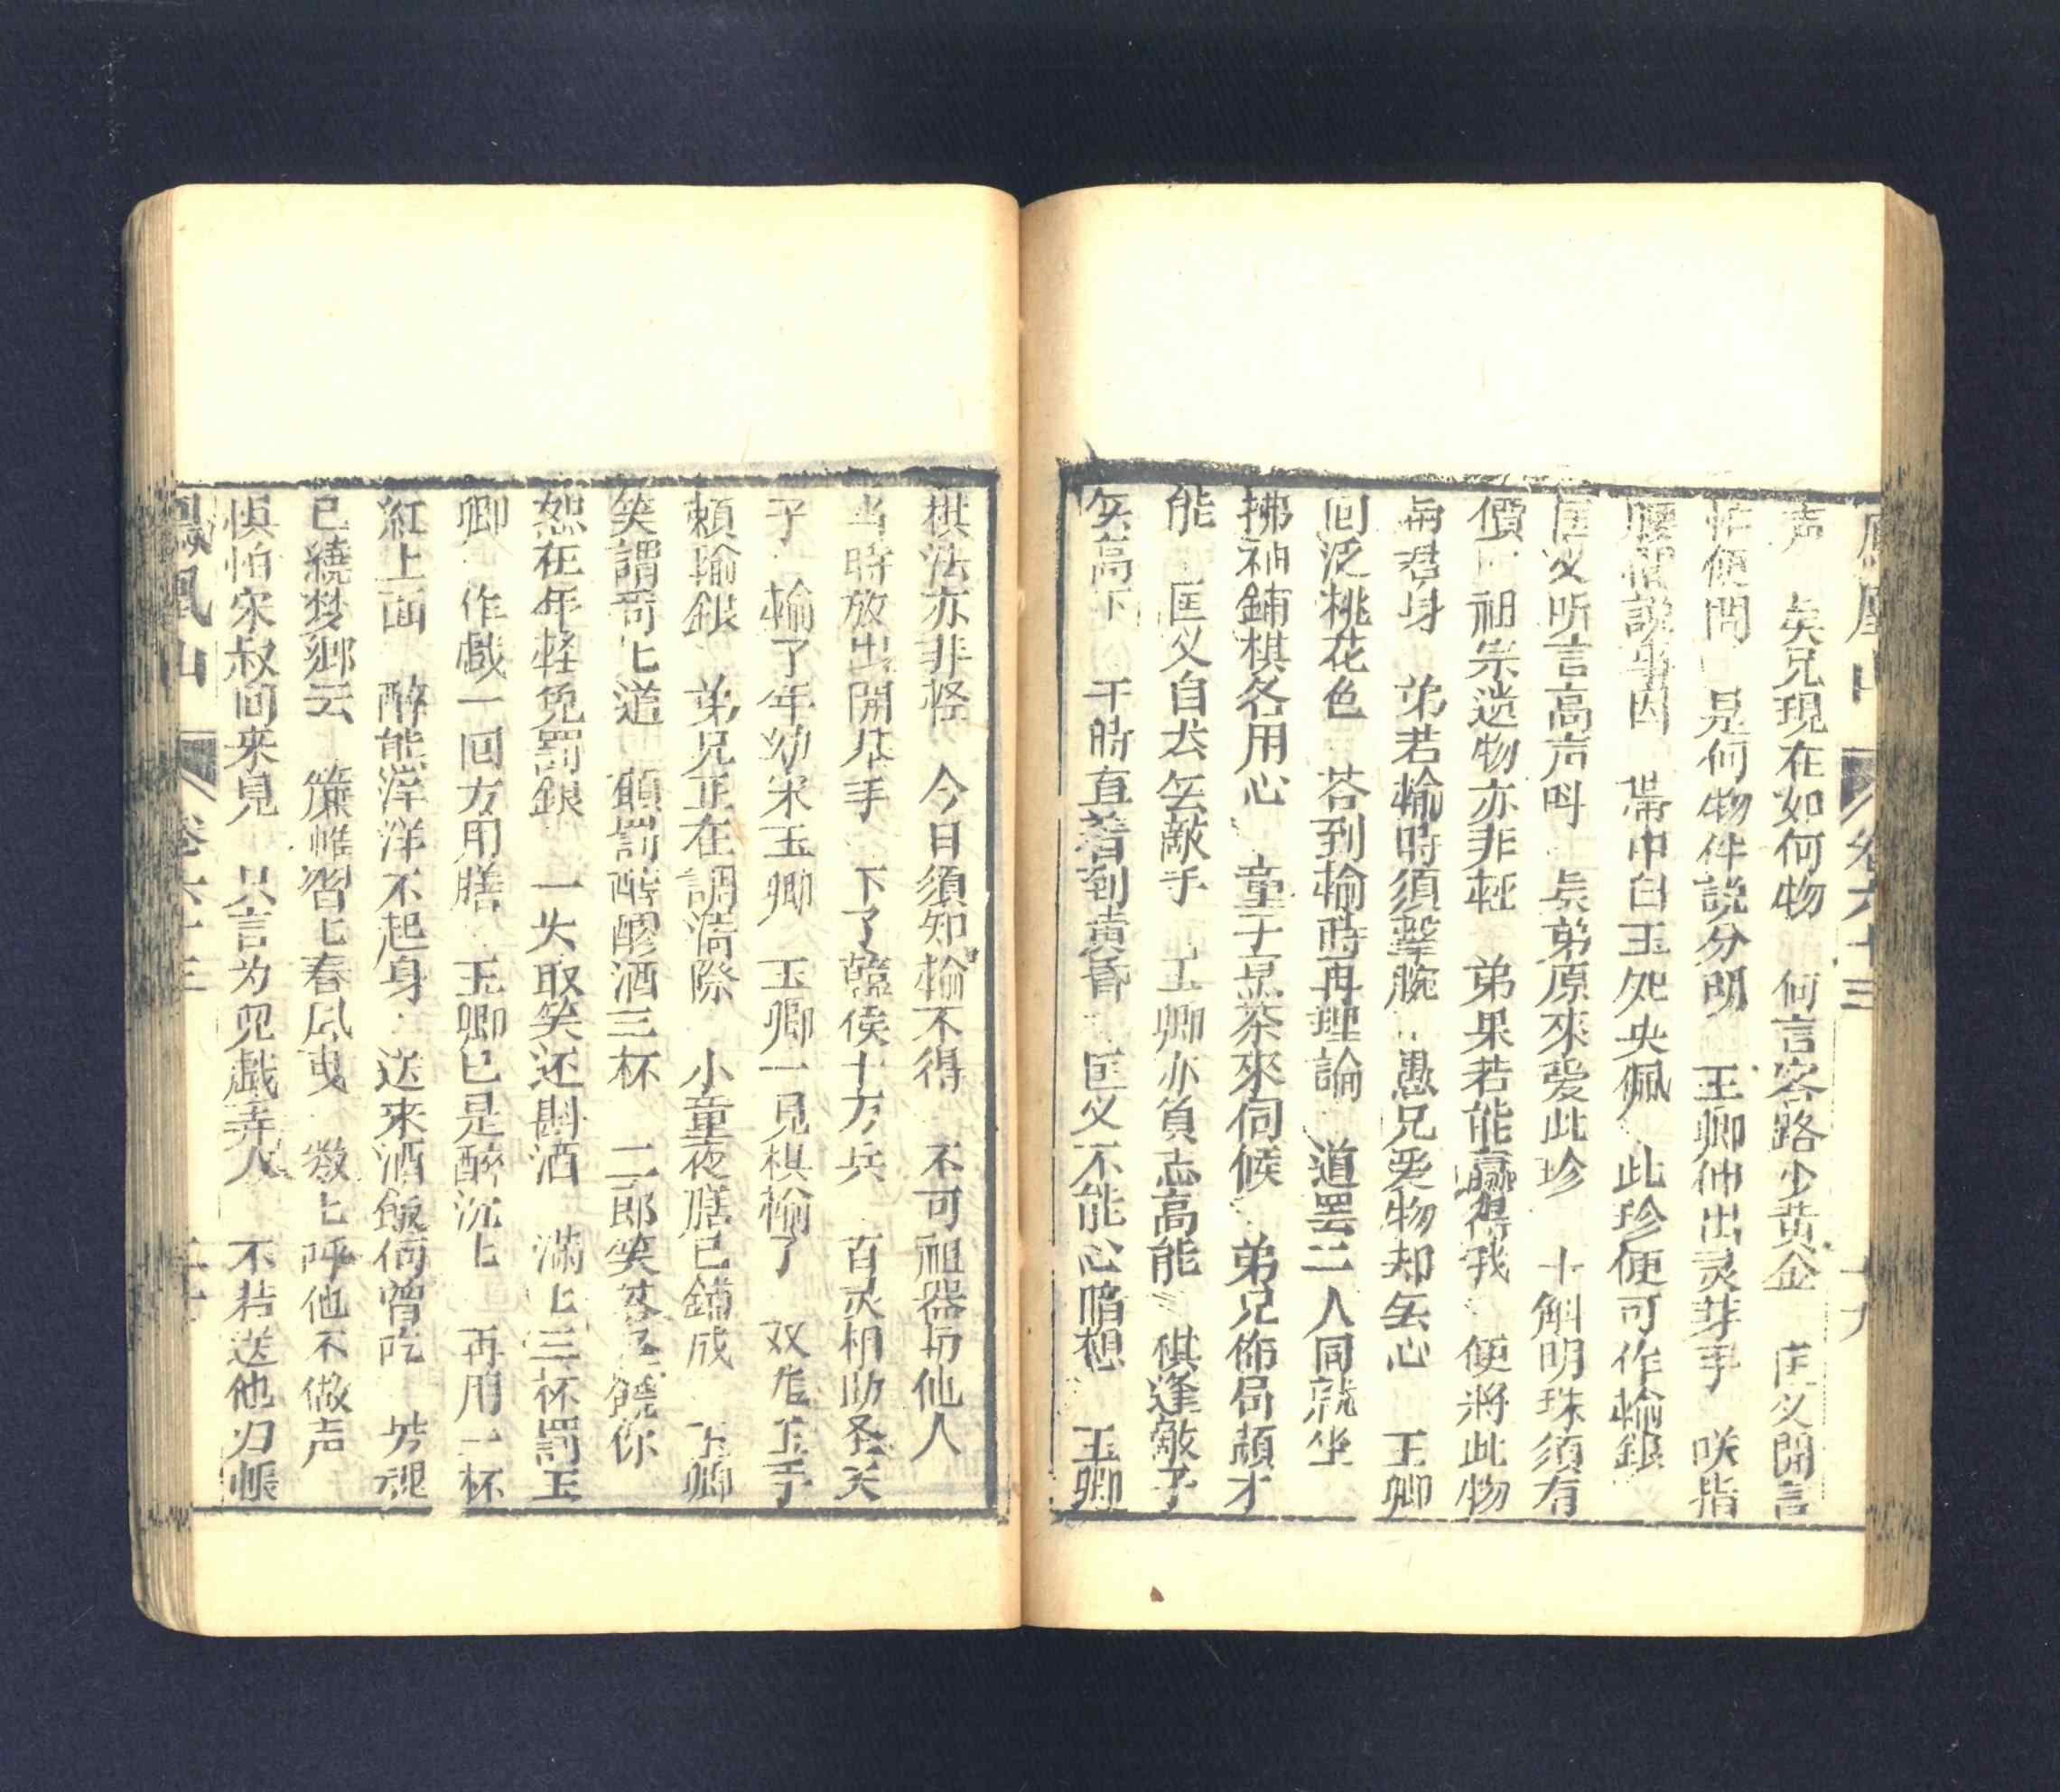 鳳凰山 卷六十三 十九
声 矣兄現在如何物 何言客路少黄金 匡义開言
忙便問 是何物件説分明 玉卿伸出灵芽手 咲指
腰間説事因 帯中白玉鸳央佩 此珍便可作輸銀
匡义听言高声叫 矣弟原來爱此珍 十斛明珠須有
價 祖宗遗物亦非軽 弟果若能贏得我 便將此物
與君身 弟若輸時須擊腕 愚兄爱物却无心 玉卿
回泛桃花色 荅到輸時再理論 道罢二人同就坐
拂袖鋪棋各用心 童子烹茶來伺候 弟兄佈局顯才
能 匡义自去无敵手 玉卿亦負志高能 棋逢敵手
矣高下 干時直著到黄昏 匡义不能心暗想 玉卿
棋法亦非怪 今日須知輸不得 不可祖器与他人
当時放出開疆手 下了韓侯十万兵 百灵相助圣天
子 輸了年幼宋玉卿 玉卿一見棋輸了 双尨玉手
頼輸銀 弟兄正在調淸際 小童夜膳已鋪成 玉卿
笑謂哥匕道 願罰醇醪酒三杯 二郎笑荅 饒你
恕在年軽免罰銀 一头取笑还斟酒 滿匕三杯罰玉
卿 作戯一回方用膳 玉卿已是醉沉匕 再用一杯
紅上面 醉態洋洋不起身 送來酒飯何曽吃 芳魂
已繞梦郷云 簾帷習匕春风曳 数匕呼他不做声
慎怕宋叔回来見 只言为兄戯弄人 不若送他归帳
鳳凰山 卷六十三 二十